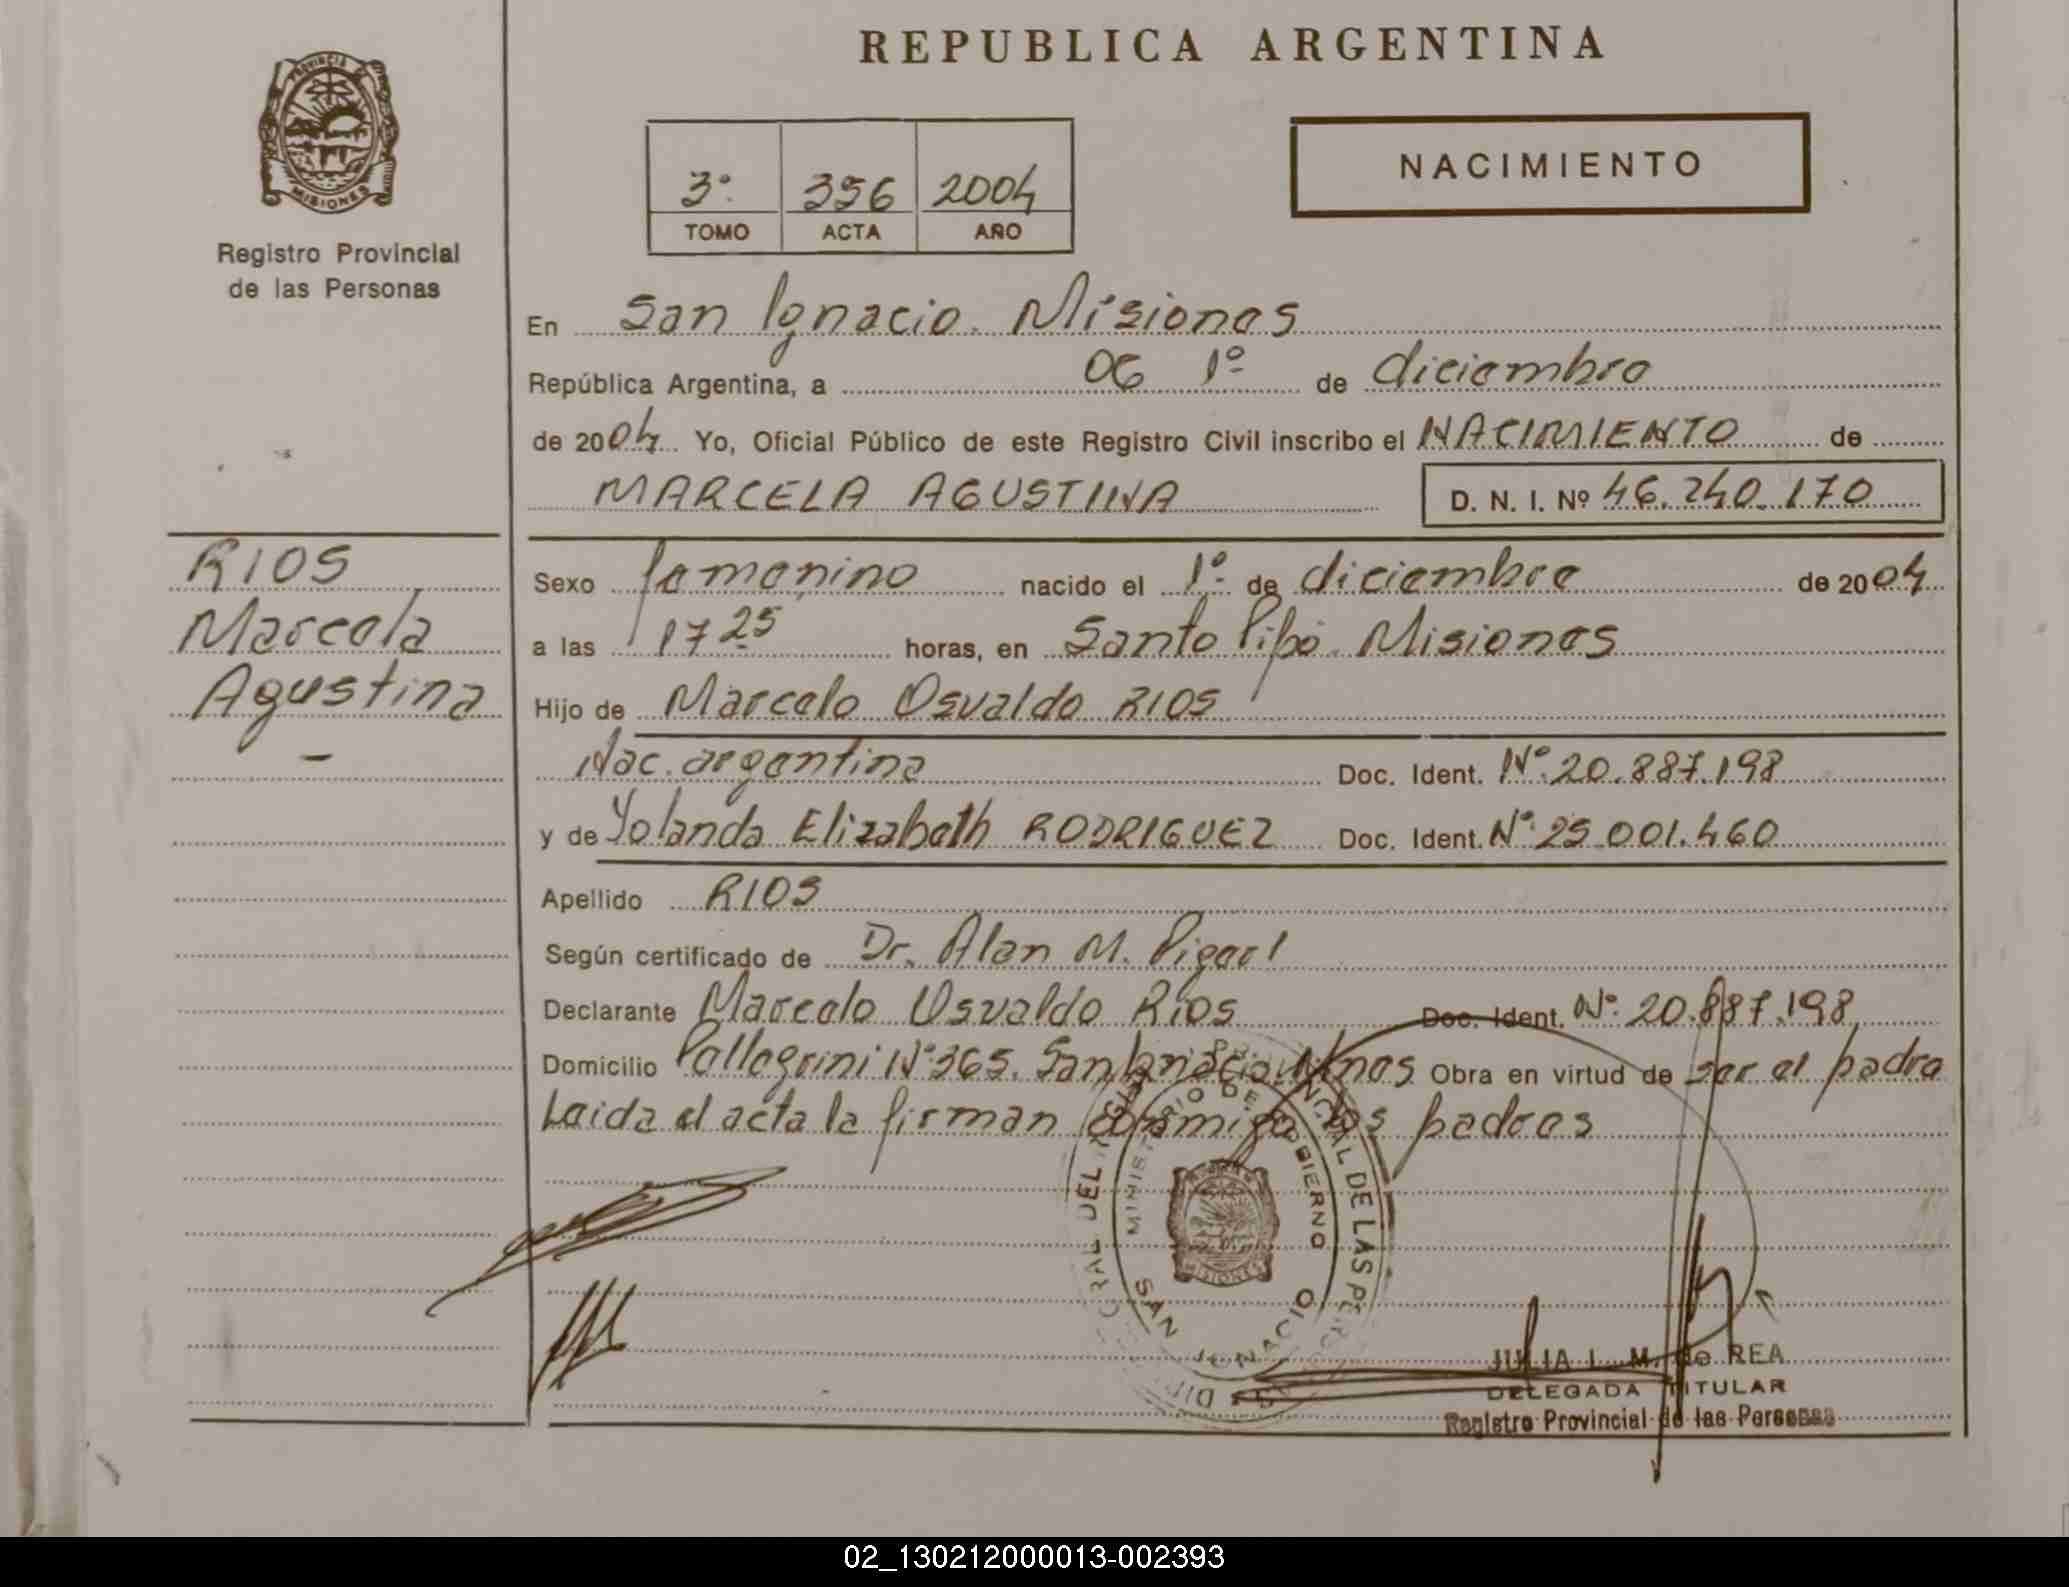 REPUBLICA ARGENTINA
PROVINCIA DE
MISIONES
Registro Provincial
de las Personas
3º 356 2004
TOMO ACTA AÑO
NACIMIENTO
En San Ignacio. Misiones
República Argentina, a 06 1º de diciembre
de 2004 Yo, Oficial Público de este Registro Civil inscribo el NACIMIENTO de
MARCELA AGUSTINA D. N. I. Nº 46.240.170
RIOS
Marcela
Agustina
Sexo femenino nacido el 1º de diciembre de 2004
a las 17 25 horas, en Santo Pipó. Misiones
Hijo de Marcelo Osvaldo RIOS
Nac. argentina Doc. Ident. Nº 20.887.198
y de Yolanda Elizabeth RODRIGUEZ Doc. Ident. Nº 25.001.460
Apellido RIOS
Según certificado de Dr. Alan M.
Declarante Marcelo Osvaldo Rios Doc. Ident. Nº 20.887.198
Domicilio Pellegrini Nº 365. San Ignacio Mnes Obra en virtud de ser el padre
Leida el acta la firman conmigo los padres
MINISTERIO DE GOBIERNO
SAN IGNACIO
MISIONES
JULIA L. M. de REA
DELEGADA TITULAR
Registro Provincial de las Personas
02_130212000013-002393